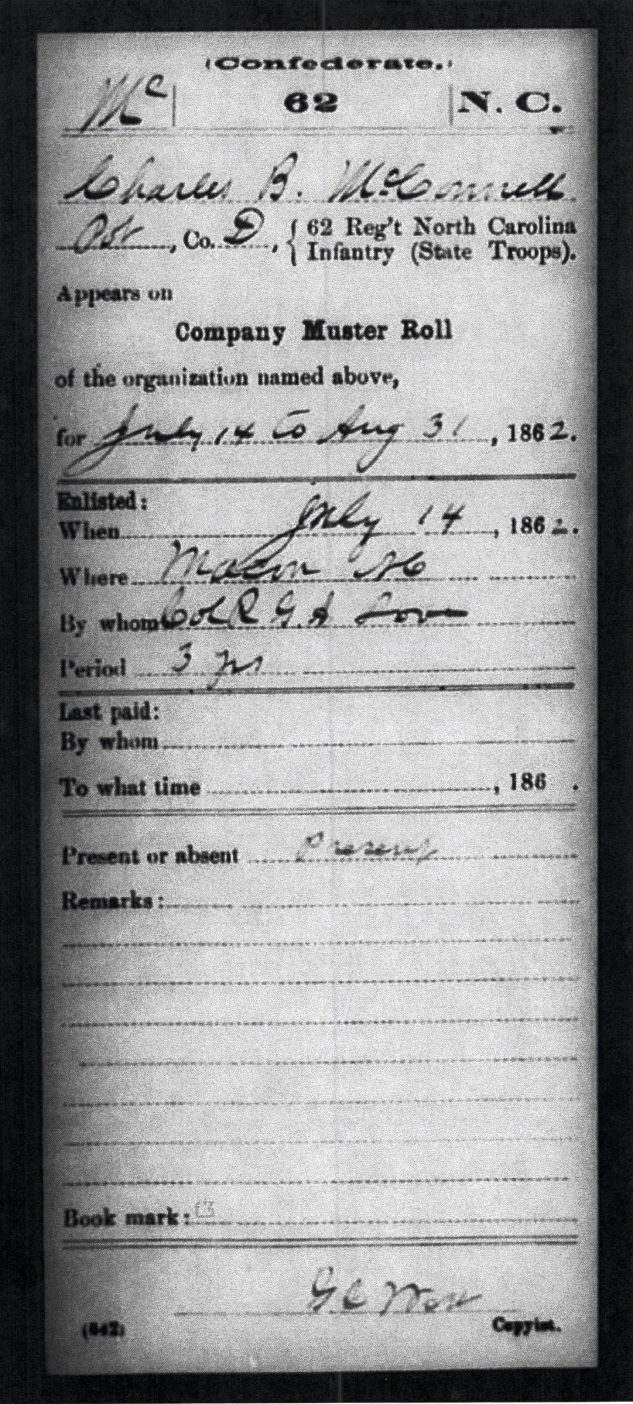 (Confederate.)
Mc 62 N. C.
Charles B. McConnell
Pvt, Co. D, { 62 Reg't North Carolina
Infantry (State Troops).
Appears on
Company Muster Roll
of the organization named above,
for July 14 to Aug 31, 1862.
Enlisted:
When July 14, 1862.
Where Macon NC
By whom Col R G A Love
Period 3 yrs
Last paid:
By whom
To what time , 186 .
Present or absent Present
Remarks:
Book mark:
G C
(642) Copyist.